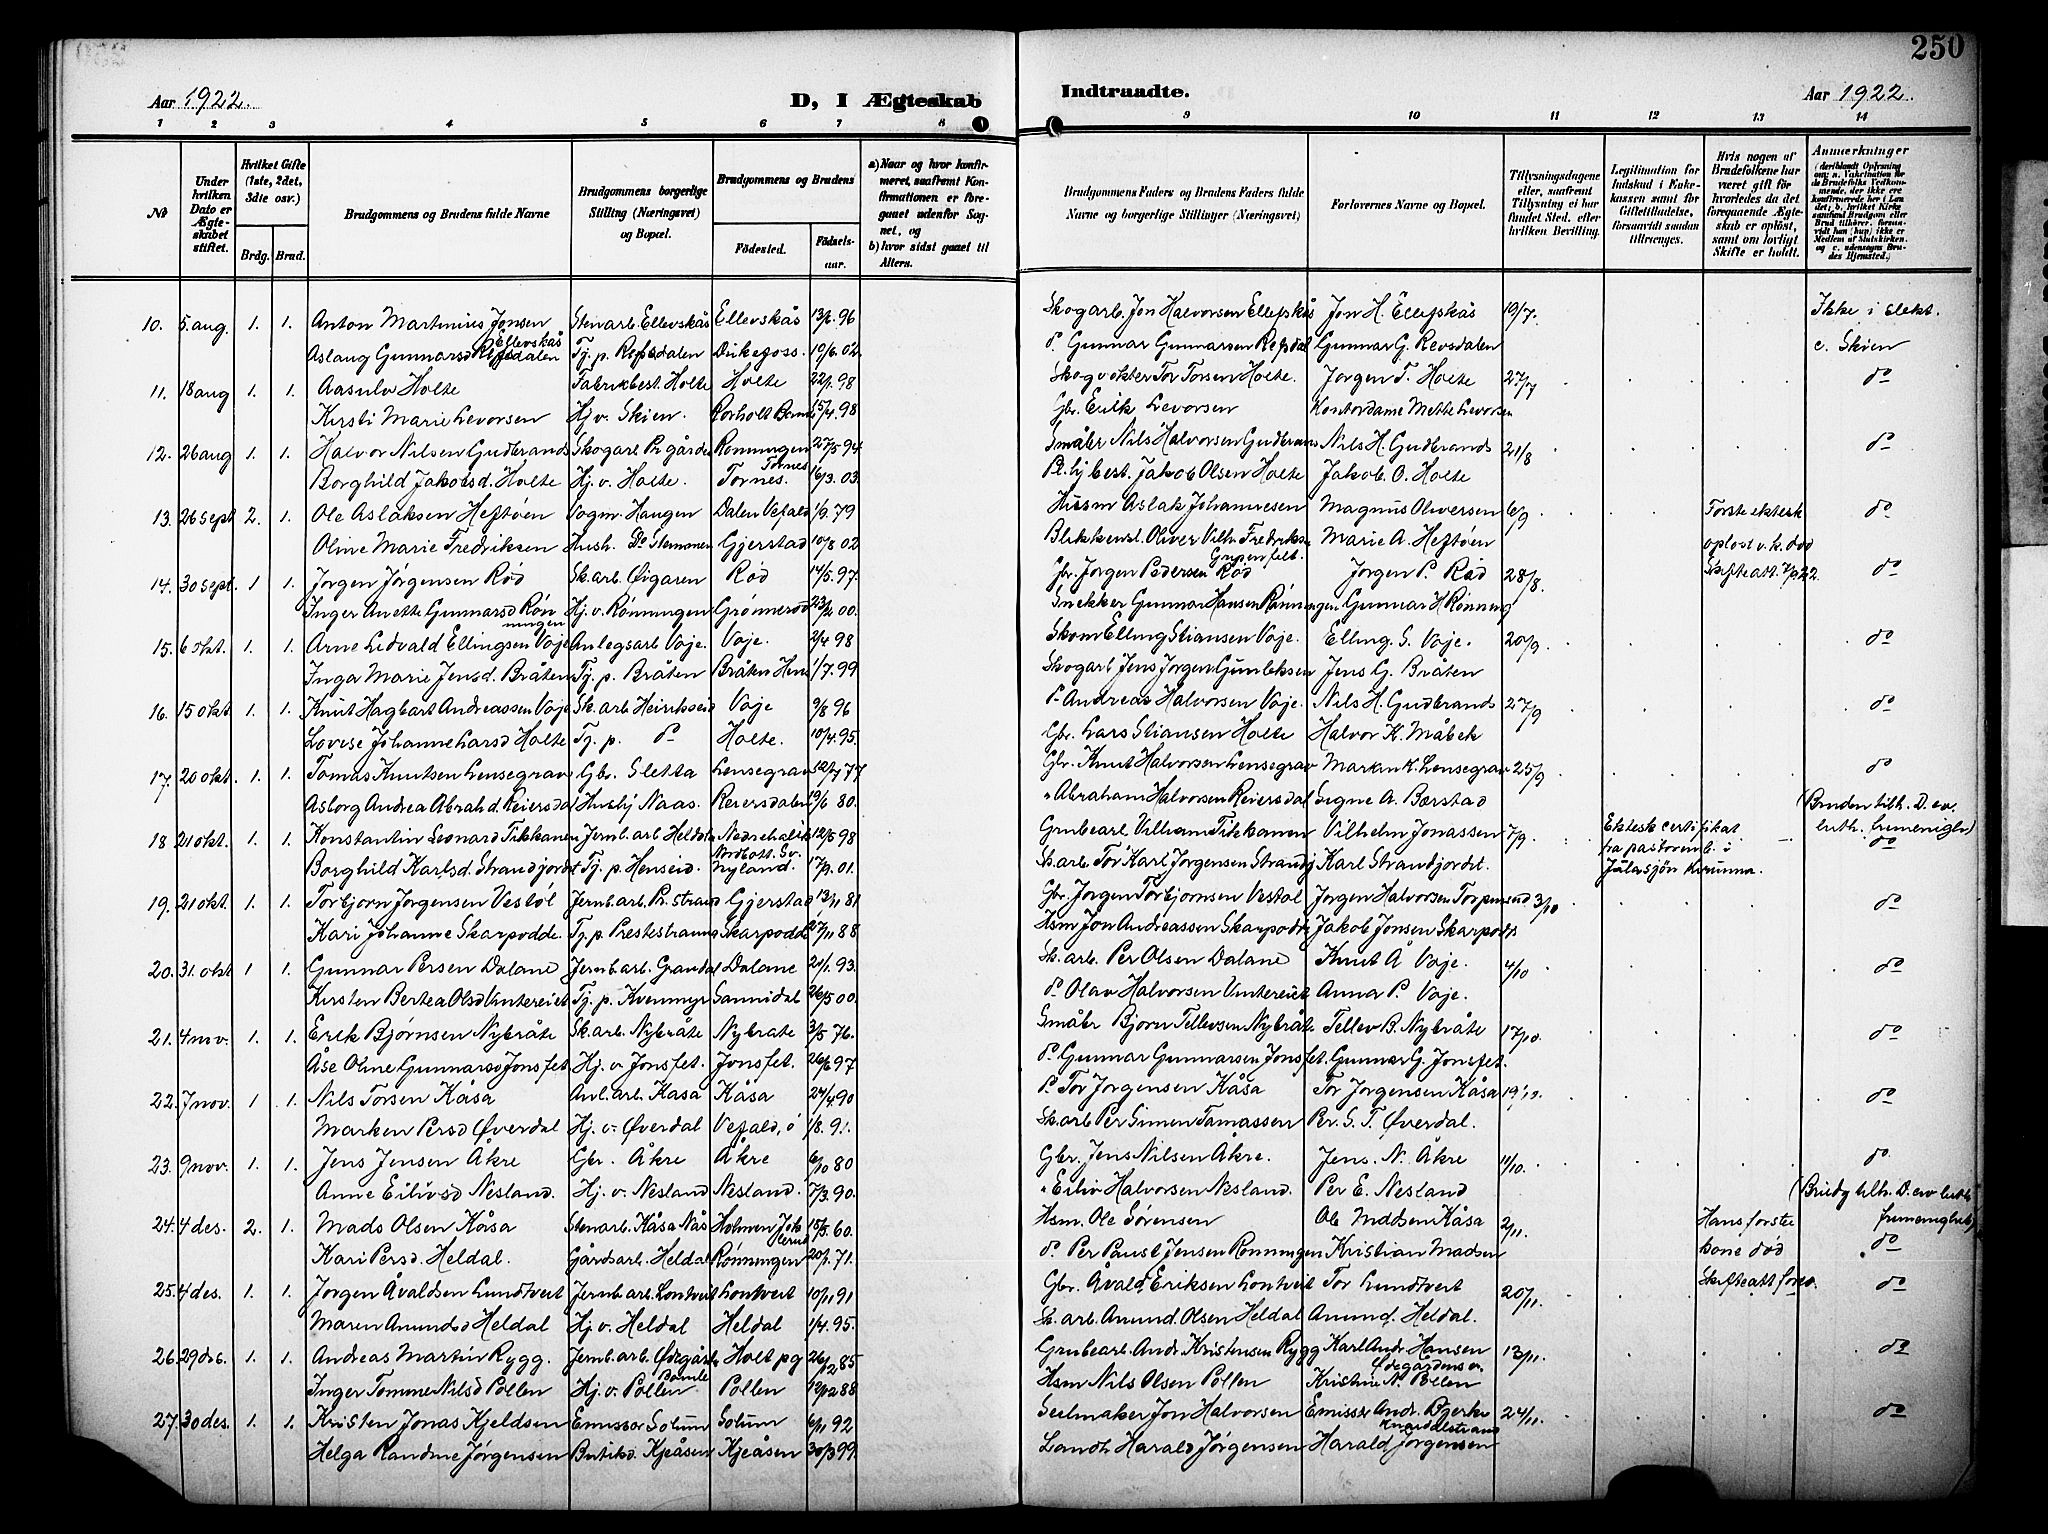 250
Aar 1922.
D, I Ægteskab Indtraadte.
Aar 1922.
1 2 3 4 5 6 7 8 9 10 11 12 13 14
No.
Under hvilken Dato er Ægteskabet stiftet.
Hvilket Gifte (1ste, 2det, 3die osv.)
Brdg. Brud.
Brudgommens og Brudens fulde Navne
Brudgommens borgerlige Stilling (Næringsvei) og Bopæl.
Brudgommens og Brudens
Fødested. Fødselsaar.
a) Naar og hvor konfirmeret, saafremt Konfirmationen er foregaaet udenfor Sognet, og
b) hvor sidst gaaet til Alters.
Brudgommens Faders og Brudens Faders fulde Navne og borgerlige Stillinger (Næringsvei)
Forlovernes Navne og Bopæl.
Tillysningsdagene eller, saafremt Tillysning ei har fundet Sted, efter hvilken Bevilling.
Legitimation for Indskud i Enkekassen samt for Giftetilladelse, forsaavidt saadan tiltrænges.
Hvis nogen af Brudefolkene har været gift før hvorledes da det foregaaende Ægteskab er opløst, samt om lovligt Skifte er holdt.
Anmærkninger
10. 5 aug. 1. 1. Anton Martinius Jonsen Ellevskås Stenarb. Ellevskås Ellevskås 13/2 96 Skogarb. Jon Halvorsen Ellefskås Jon H. Ellefskås 19/7. Ikke i slekt.
Aslaug Gunnarsd Refsdalen Tj. p. Refsdalen 10/6. 02. do Gunnar Gunnarsen Refsdal Gunnar G. Revsdalen c. Skien
11. 18 aug 1. 1. Aasulv Holte Fabrikbest. Holte Holte 22/1. 98 Tor Torsen Holte. Jørgen T. Holte 27/7 do
Kirsti Marie Levorsen Hj. v. Skien. Rørholt 15/4. 98 Gbr. Erik Levorsen Kontordame Mette Levorsen
12. 26 aug 1. 1. Halvor Nilsen Gudbrands Skogarb. 27/5 94 Småbr Nils Halvorsen Gudbrands Nils H. Gudbrands 21/8 do
Borghild Jakobsd. Holte Hj. v. Holte. Tornes. 16/3. 03. Jakob Olsen Holte Jakob. O. Holte
13. 26 sept 2. 1. Ole Aslaksen Heftøen Vogm. Haugen Dalen Vefald 1/9. 79 Husm Aslak Johannesen Magnus Oliversen 6/9 Første ektesk do
Oline Marie Fredriksen Hush. do Stemmen Gjerstad 10/8 02 Blikkensl. Oliver Vilh. Fredriksen Marie A. Heftøen opløst v. k. død
14. 30 sept. 1 1. Jørgen Jørgensen Rød Sk.arb. Øigaren Rød 14/5. 97. Gbr. Jørgen Pedersen Rød Jørgen P. Rød 28/8. Skifteatt. 7/9 22. do
Inger Anette Gunnarsd Rønningen Hj. v. Rønningen Grønnerød 23/2 00. Snekker Gunnar Hansen Rønningen Gunnar H Rønning
15. 6 okt. 1. 1. Arne Ledvald Ellingsen Voje Anlegsarb Voje. Voje. 2/4 98 Elling Stiansen Voje. Elling. S. Voje. 20/9. do
Inga Marie Jensd. Bråten Tj. p. Bråten Bråten 1/7. 99 Skogarb. Jens Jørgen Gunleksen Jens G. Bråten
16. 15 okt 1. 1. Knut Hagbart Andreassen Voje Sk. arb Heirkseid Voje 9/8 96 do Andreas Halvorsen Voje. Nils H. Gudbrands 27/9 do
Lovise Johanne Larsd Holte Tj. p. do Holte. 10/4. 95. Gbr. Lars Stiansen Holte Halvor K. Måbek
17. 20 okt. 1. 1. Tomas Knutsen Lensegrav Gbr. Sletta Lensegrav 12/7 77 Gbr. Knut Halvorsen Lensegrav K. Lensegrav 25/9 do
Asborg Andrea Abrah.d. Reiersdal Naas. Reiersdalen 19/6 80. " Abraham Halvorsen Reiersdal Signe A. Bærstad (Bruden tilh. D. ev.
18 21 okt. 1. 1. Konstantin Leonard Tikkanen Jernb. arb Heldal 12/5 98 Grubearb Vilhelm Tikkanen Vilhelm Jonassen 7/9. Ektesk certifikat luth. frimenigh.)
Borghild Karlsd. Strandjordet Tj. p. Henseid. Nyland. 17/9. 01. Sk. arb. Tor Karl Jørgensen Karl Strandjordet. fra pastoremb. i do
Kiruna.
19. 21 okt. 1. 1. Torbjørn Jørgensen Vestøl Jernb. arb. Pr. strand Gjerstad 13/11 81 Gbr. Jørgen Torbjørnsen Vestøl Jørgen Halvorsen 3/10 do
Kari Johanne Skarpodde. Tj. p. Prestestranna Skarpodde 27/11 88 Hsm Jon Andreassen Skarpodde Jakob Jonsen Skarpodde
20. 31. okt 1 1. Gunnar Persen Dalane Jernb. arb. Dalane 21/1. 93. Sk. arb. Per Olsen Dalane Knut Å Voje. 4/10 do
Kirsten Bertea Olsd Untereiet Tj. p. Kvenmyr Sannidal 26/5 00. do Olav Halvorsen Untereiet Anna P. Voje.
21. 4 nov. 1. 1. Erik Bjørnsen Nybråte Sk. arb. Nybråte Nybråte 3/5 76. Småbr Bjørn Tellevsen Nybråte Tellev B. Nybråte 17/10. do
Åse Oline Gunnarsd Jonsfet Hj. v. Jonsfet. Jonsfet. 26/6 97 do Gunnar Gunnarsen Jonsfet. Gunnar G. Jonsfet.
22. 7 nov. 1 1. Nils Torsen Kåsa Anl. arb. Kåsa Kåsa 24/4. 90 do Tor Jørgensen Kåsa Tor Jørgensen Kåsa do
Marken Persd Øverdal Hj. v. Øverdal Vefald, ø 1/8. 91. Sk. arb Per Simen Tamassen Per. S. T. Øverdal.
23. 9 nov. 1. 1. Jens Jensen Åkre Gbr. Åkre Åkre 6/10 80 Gbr. Jens Nilsen Åkre. Jens. N. Åkre 11/10. do
Anne Eilivsd Nesland. Hj. v. Nesland Nesland. 7/3. 90. " Eiliv Halvorsen Nesland. Per E. Nesland (Brudg tilh. D. ev luth
24. 4 des. 2. 1. Mads Olsen Kåsa Stenarb. Kåsa Nås Holmen 15/3. 60. Hsm. Ole Sørensen Ole Madsen Kåsa 2/11. Hans første frimenighet)
Kari Persd. Heldal. Gårdsarb. Heldal Rønningen 20/1. 71. do Per Paust Jensen Rønningen Kristian Madsen kone død do
25. 4 des. 1. 1. Jørgen Åvaldsen Lundtveit Jernb. arb. Lontveit Lontveit 10/11 91 Gbr. Åvald Eriksen Lontveit Tor Lundtveit 20/11. Skifteatt do
Maren Amundsd Heldal Hj. v. Heldal Heldal 1/4. 95. Sk. arb. Amund. Olsen Heldal Amund. Heldal.
26. 29 des. 1. 1. Andreas Martin Rygg. Jernb. arb. Ødegård Bamle Holt pg 26/2 85 Grubearb. Andr. Kristensen Rygg Karl Andr Hansen 13/11. do
Inger Tomine Nilsd Pollen Hj. v. Pollen Pollen 19/2 88 Hsm Nils Olsen Pollen Kristine N. Pollen
27. 30 des. 1. 1. Kristen Jonas Kjeldsen Emissær Solum Solum 6/11 92 Seilmaker Jon Halvorsen Emissær Andr. Bjerke 24/11. do
Helga Randine Jørgensen Butikd. Kjeåsen Kjeåsen 30/3 99. Landh. Harald Jørgensen Harald Jørgensen